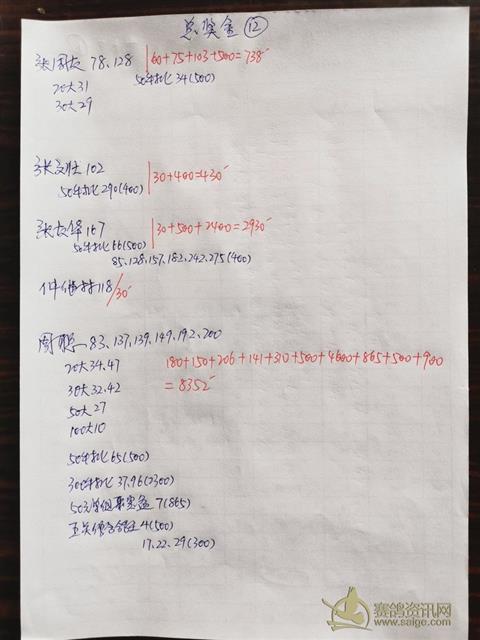 总奖金 ⑫
张国大 78、128 60+75+103+500=738
20大31 50羽批 34(500)
30大29
张文壮 102 30+400=430
50羽批 290(400)
张友锋 167 30+500+2400=2930
50羽批 66(500)
85、128、157、182、242、275(400)
118/30
周鹏 83、137、139、149、192、200
20大34、47 180+150+206+141+310+500+4600+865+500+900
30大32、42 =8352
50大27
100大10
50羽批 65(500)
300羽批 37、96(2300)
50元 7(865)
五关 4(500)
17、22、29(300)
赛鸽资讯网
www.saige.com